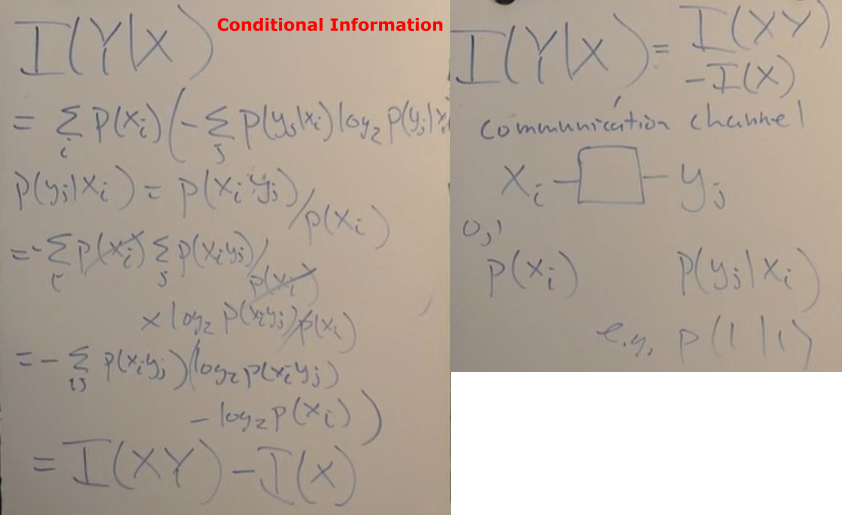 Conditional Information
I(Y|X)
= Σ_i p(x_i) (-Σ_j p(y_j|x_i) log₂ p(y_j|x_i
p(y_j|x_i) = p(x_i y_j)/p(x_i)
= -Σ_i p(x_i) Σ_j p(x_i y_j)/p(x_i)
× log₂ p(x_i y_j)/p(x_i)
= -Σ_ij p(x_i y_j) (log₂ p(x_i y_j)
- log₂ p(x_i))
= I(XY) - I(X)
I(Y|X) = I(XY)
- I(X)
communication channel
x_i - □ - y_j
0,1
p(x_i) p(y_j|x_i)
e.g. p(1|1)